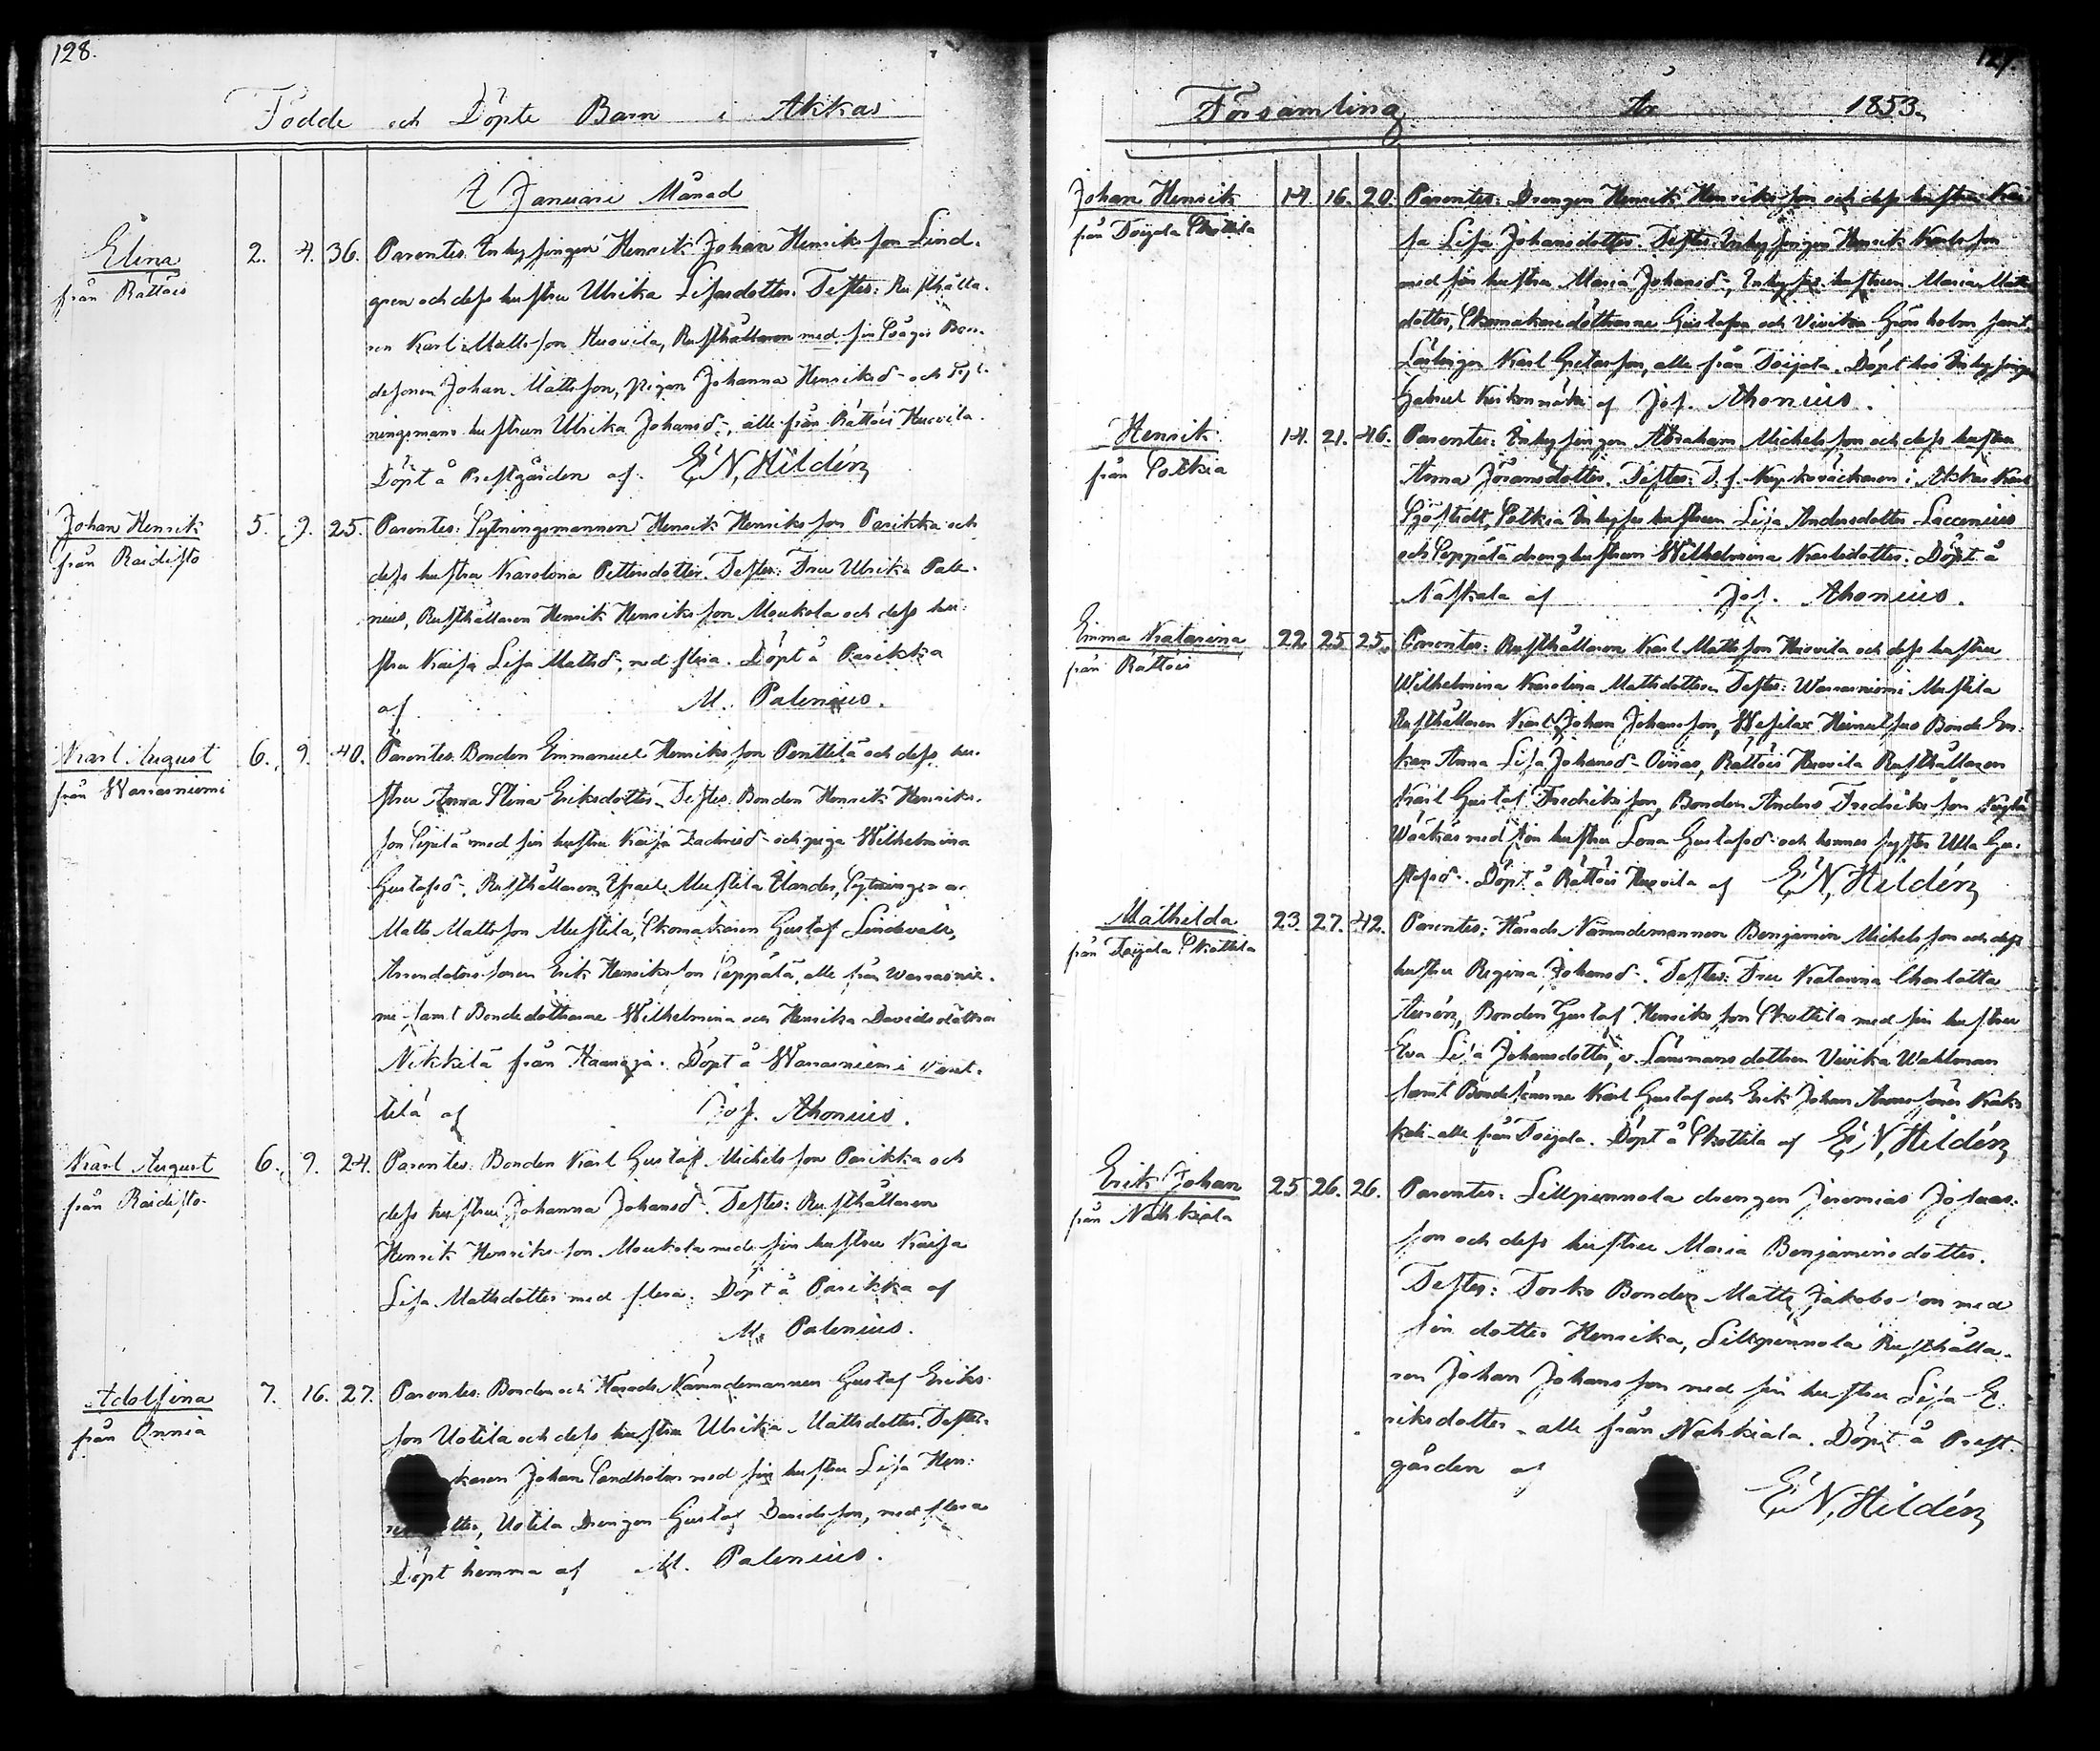 128.
Födde och Döpte Barn i Akkas
I Januari Månad
Elina
från Rättöis
2. 4. 36.
Parentes: Inhysingen Henrik Johan Henriksson Lind-
gren och dess hustru Ulrika Lisasdotter. Testes: Rusthålla-
ren Karl Mattsson Huovila, Rusthållaren med sin Bon-
desonen Johan Mattsson, pigan Johanna Henriksd- och
ningsmans hustrun Ulrika Johansd-, alle från Rättöis Huovila.
Döpt å Prestgården af E N, Hildén
Johan Henrik
från Raidisto
5. 9. 25.
Parentes: Sytningsmannen Henrik Henriksson Parikka och
dess hustru Karolina Pettersdotter. Testes: Fru Ulrika Pale-
nius, Rusthållaren Henrik Henriksson Moukola och dess hu-
stru Kaisa Lisa Mattsd-, med flera. Döpt å Parikka
af M. Palenius.
Karl August
från Warrasniemi
6. 9. 40.
Parentes: Bonden Emmanuel Henriksson Penttilä och dess hu-
stru Anna Stina Eriksdotter. Testes: Bonden Henrik Henriks-
son Sipilä med sin hustru Kaisa Zachrisd- och piga Wilhelmina
Gustafsd-, Rusthållaren Israel Mustila Elander,
Matts Mattsson Mustila, Skomakaren Gustaf Lindevall,
Arrendators sonen Erik Henriksson Seppälä, alle från Warrasnie-
mi samt Bondedöttrarne Wilhelmina och Henrika Davidsdöttrar
Nikkilä från Haanoja. Döpt å Warrasniemi Pent-
tilä af Jos. Ahonius.
Karl August
från Raidisto.
6. 9. 24.
Parentes: Bonden Karl Gustaf Michelsson Parikka och
dess hustru Johanna Johansd-. Testes: Rusthållaren
Henrik Henriksson Moukola med sin hustru Kaisa
Lisa Mattsdotter med flera. Döpt å Parikka af
M. Palenius.
Adolfina
från Onnia
7. 16. 27.
Parentes: Bonden och Härads Nämndemannen Gustaf Eriks-
son Uotila och dess hustru Ulrika Mattsdotter. Testes:
karen Johan Sandholm med sin hustru Lisa Hen-
Uotila Drengen Gustaf Davidsson, med flera
Döpt hemma af M. Palenius.
Församling År 1853.
Johan Henrik
från Toijala Skottila
14. 16. 20.
Parentes: Drengen Henrik Henriksson och dess hustru Kai-
sa Lisa Johansdotter. Testes: Inhysingen Henrik Karlsson
med sin hustru Maria Johansd-, Inhyses hustrun Maria Matts
dotter, Skomakare döttrarne Gustafva och Vivika Grönholm samt
Lärlingen Karl Gustafsson, alle från Toijala. Döpt hos Inhysingen
Gabriel Kirkonmäki af Jos. Ahonius.
Henrik
från Potkia
14. 21. 46.
Parentes: Inhysingen Abraham Michelsson och dess hustru
Anna Göransdotter. Testes: T. f. Kyrkoväcktaren i Akkas Karl
Sjöstedt, Potkia Inhyses hustrun Lisa Andersdotter Laccenius
och Seppälä drenghustrun Wilhelmina Karlsdotter. Döpt å
Naskala af Jos. Ahonius.
Emma Katarina
från Rättöis
22. 25. 25.
Parentes: Rusthållaren Karl Mattsson Huovila och dess hustru
Wilhelmina Karolina Mattsdotter. Testes: Warrasniemi Mustila
Rusthållaren Karl Johan Johansson, Wesilax Bonde En-
kan Anna Lisa Johansd- Oinas, Rättöis Huovila Rusthållaren
Karl Gustaf Fredriksson, Bonden Anders Fredriksson
med sin hustru Lena Gustafsd- och hennes syster Ulla Gu-
stafsd-. Döpt å Rättöis Huovila af E N, Hildén
Mathilda
från Toijala Skottila
23. 27. 42.
Parentes: Härads Nämndemannen Benjamin Michelsson och dess
hustru Regina Johansd-. Testes: Fru Katarina Charlotta
Aurén, Bonden Gustaf Henriksson Skottila med sin hustru
Eva Lisa Johansdotter, v. Länsmans dottren Vivika Wahlman
samt Bondesönerne Karl Gustaf och Erik Johan
alle från Toijala. Döpt å Skottila af E N, Hildén
Erik Johan
från Nahkiala
25. 26. 26.
Parentes: Lillpennola drengen Jeremias Josuas-
son och dess hustru Maria Benjaminsdotter.
Testes: Torko Bonden Matts Jakobsson med
sin dotter Henrika, Lillpennola Rusthålla-
ren Johan Johansson med sin hustru Lisa E-
riksdotter - alle från Nahkiala. Döpt å Prest-
gården af E N, Hildén